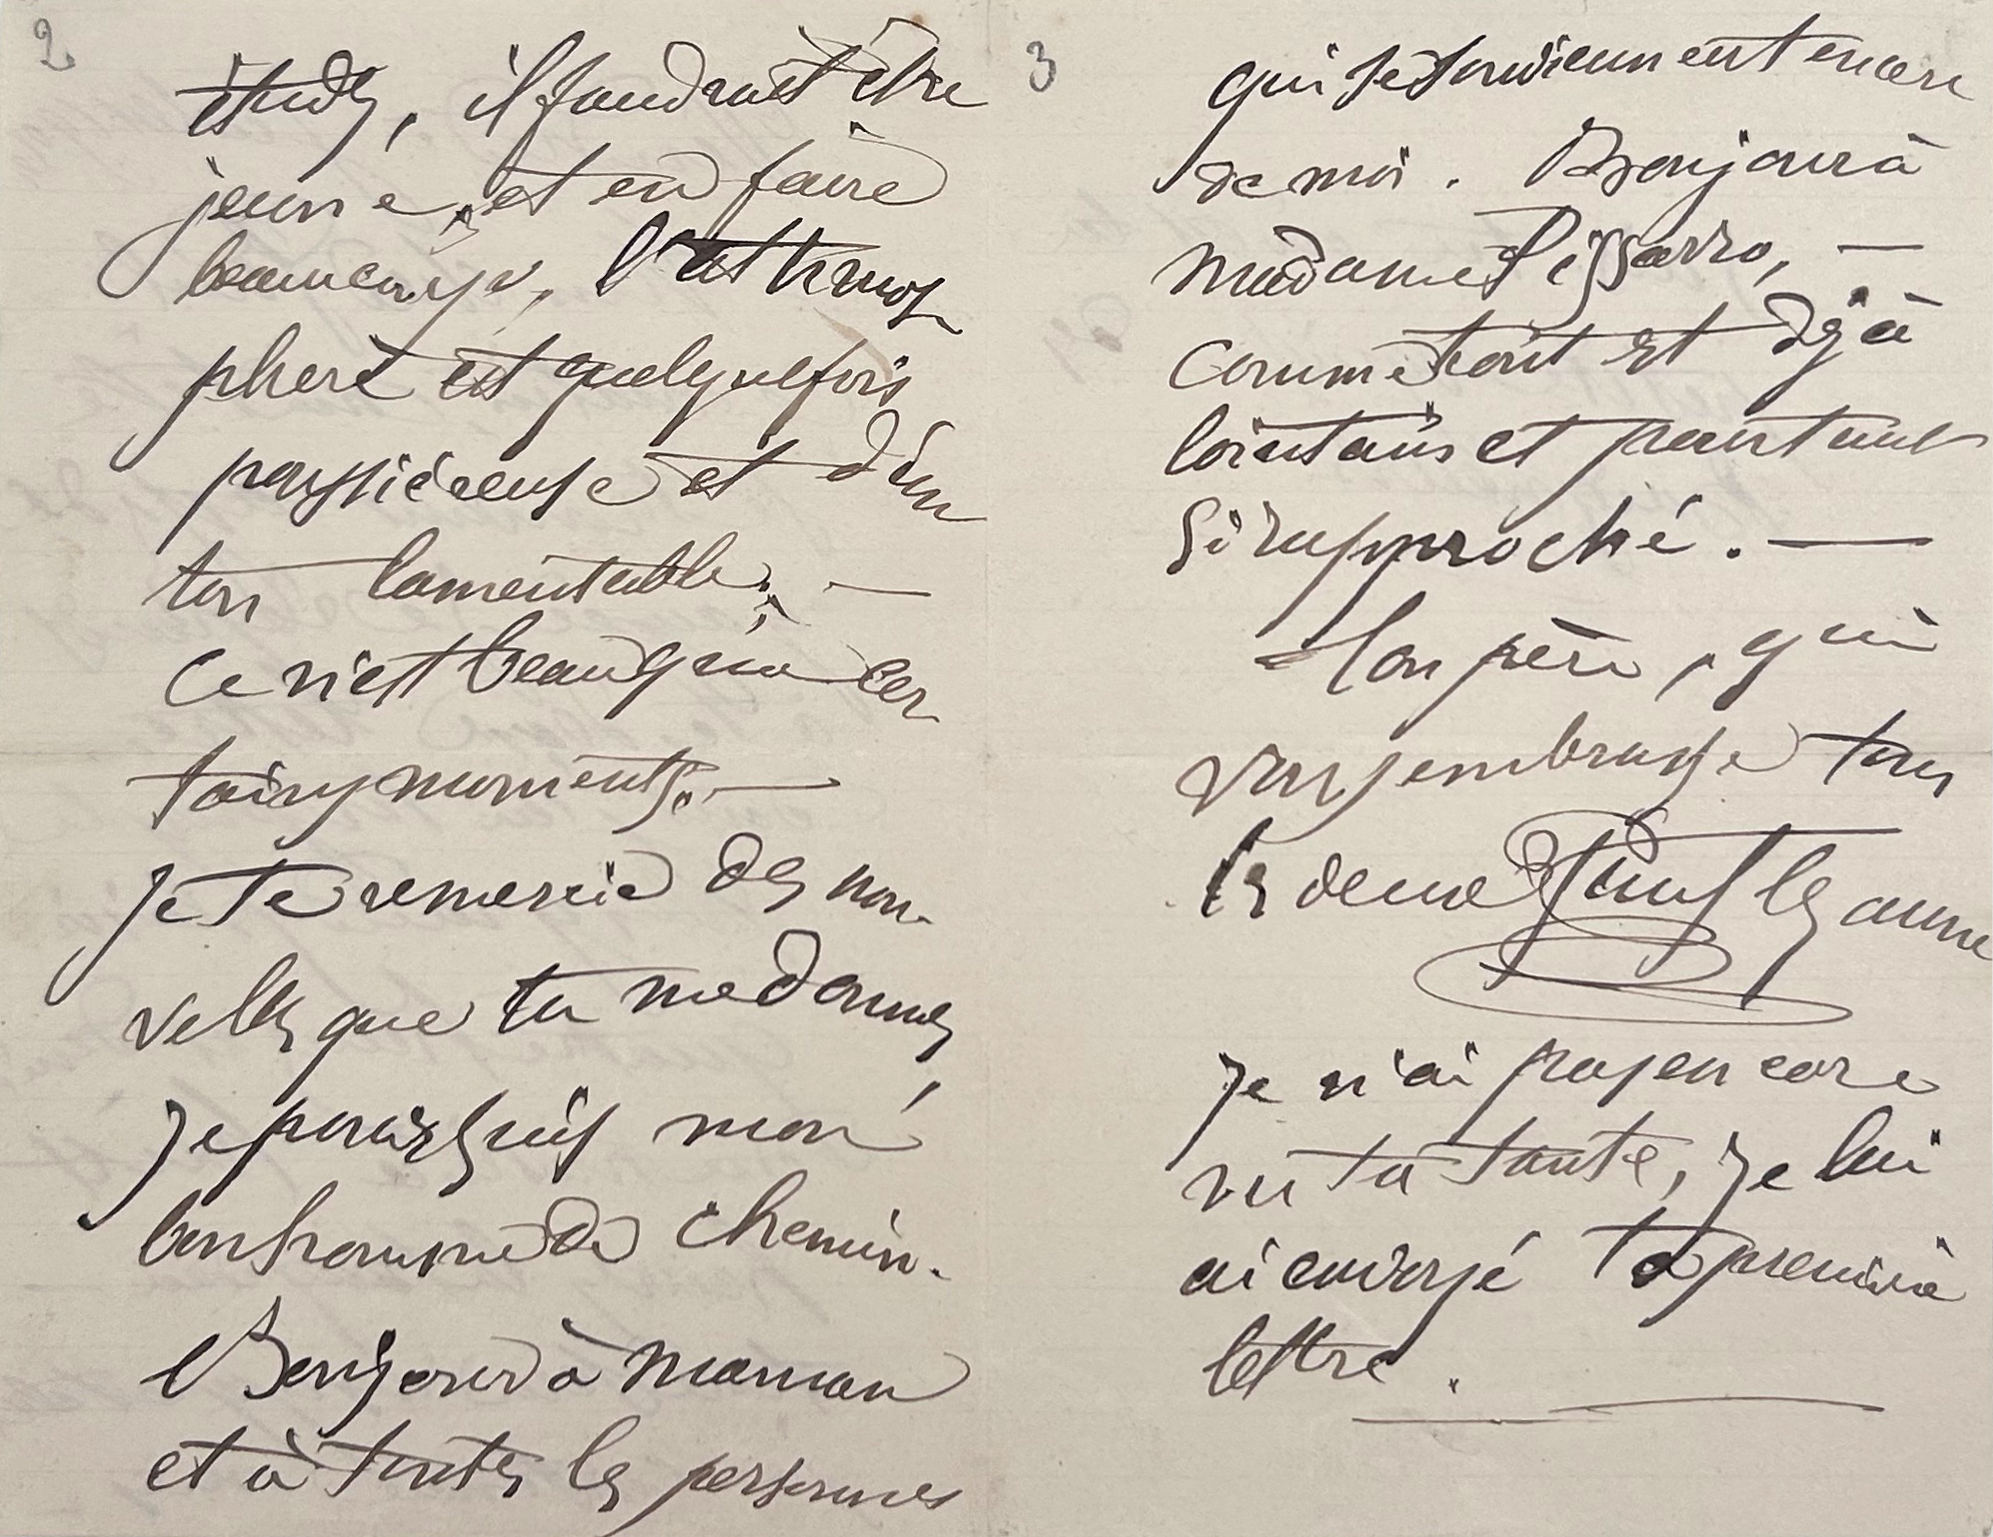 2
études, il faudrait être
jeune, et en faire
beaucoup, l'athmos
phère est quelquefois
poussiéreuse et d'un
ton lamentable; —
ce n'est beau qu'à cer
tains moments. —
je te remercie des nou-
velles que tu me donnes
je poursuis mon
bonhomme de chemin.
Bonjour à maman
et à toutes les personnes
3
qui se souviennent encore
de moi. Bonjour à
madame Pissarro, —
comme tout est déjà
lointain et pourtant
si rapproché. —
Ton père, qui
vous embrasse tous
les deux Paul Cezanne
je n'ai pas encore
vu ta tante, je lui
ai envoyé ta première
lettre.